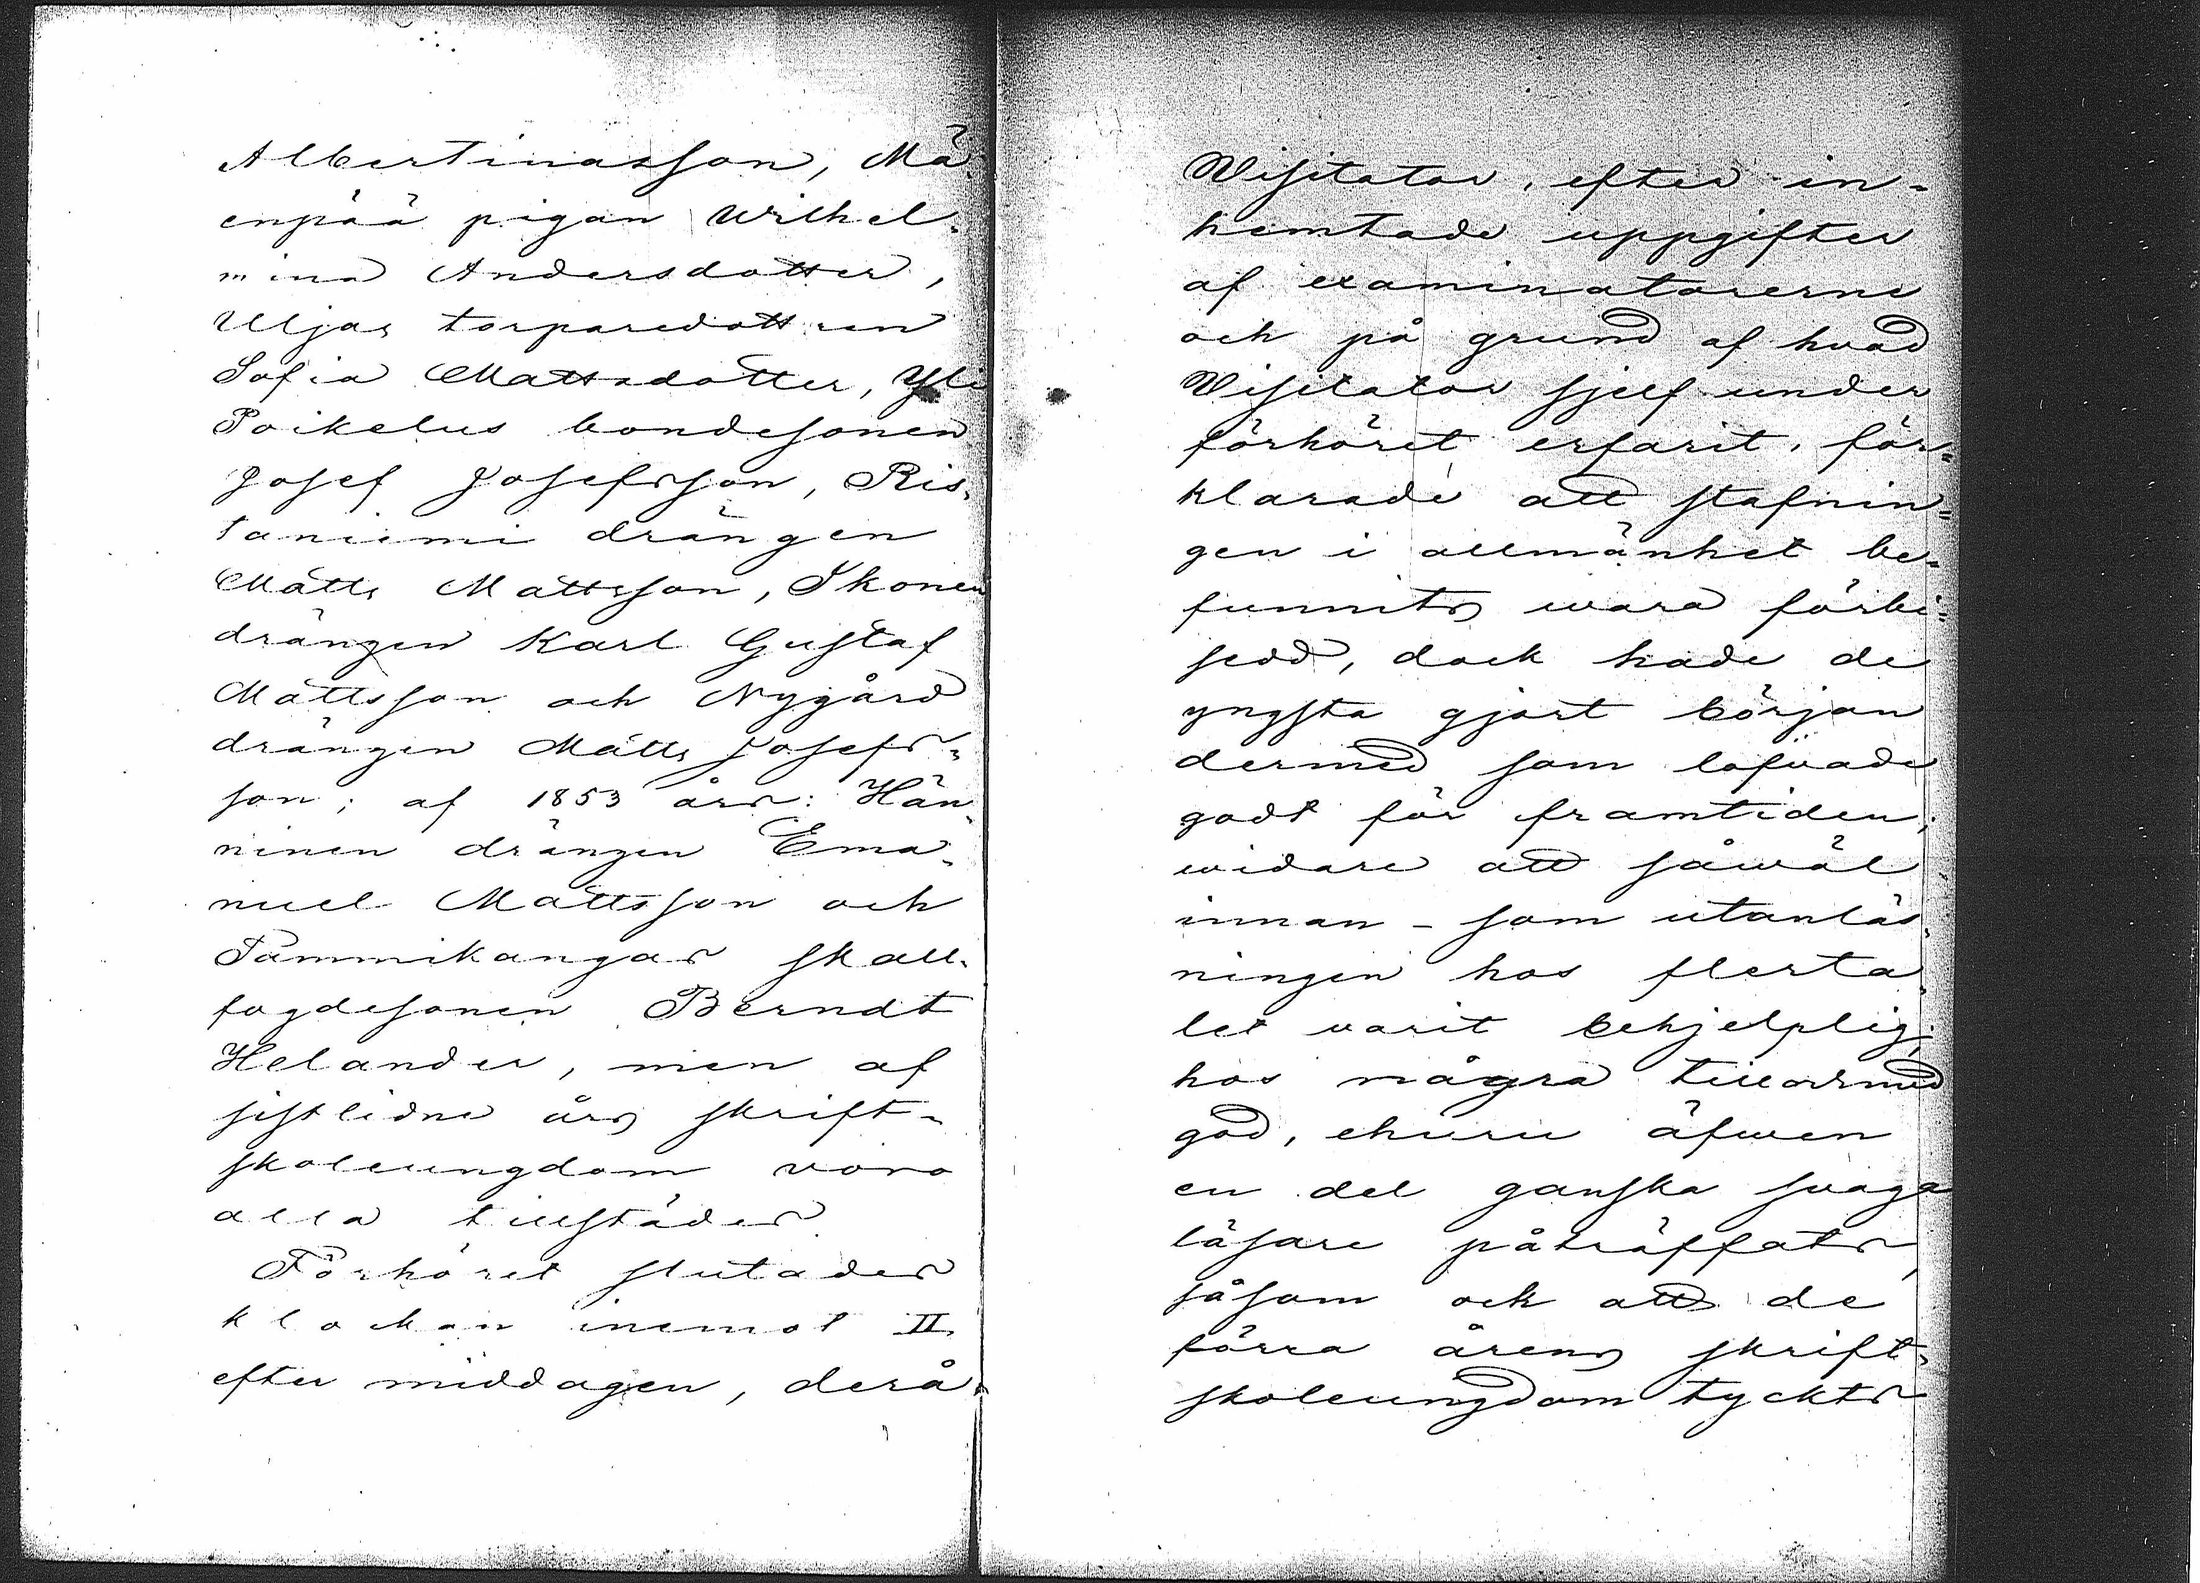 Albertinasson, Mä-
enpää pigan Wilhel-
mina Andersdotter,
Uljas torparedottren
Sofia Mattsdotter, Yli
Poikelus bondesonen
Josef Josefsson, Ris-
taniemi drängen
Matts Mattsson, Ikonen
drängen Karl Gustaf
Mattsson och Nygård
drängen Matts Josefs-
son; af 1853 års: Hän-
ninen drängen Ema-
nuel Mattsson och
Tammikangas skall-
fogdesonen Berndt
Helander, men af
sistledne års skrift-
skoleungdom voro
alla tillstädes.
Förhöret slutades
klockan inemot II
efter middagen, derå
Visitator, efter in-
hemtade uppgifter
af examinatorerne
och på grund af hvad
Visitator sjelf under
förhöret erfarit, för-
klarade att stafnin-
gen i allmänhet be-
funnits wara förbi-
sedd, dock hade de
yngsta gjort början
dermed som lofvade
godt för framtiden;
widare att såwäl
innan- som utanläs-
ningen hos flerta-
let varit behjelplig;
hos några tillochmed
god, ehuru äfwen
en del ganska svaga
läsare påträffats,
såsom ock att de
förra årens skrift-
skoleungdom tyckts